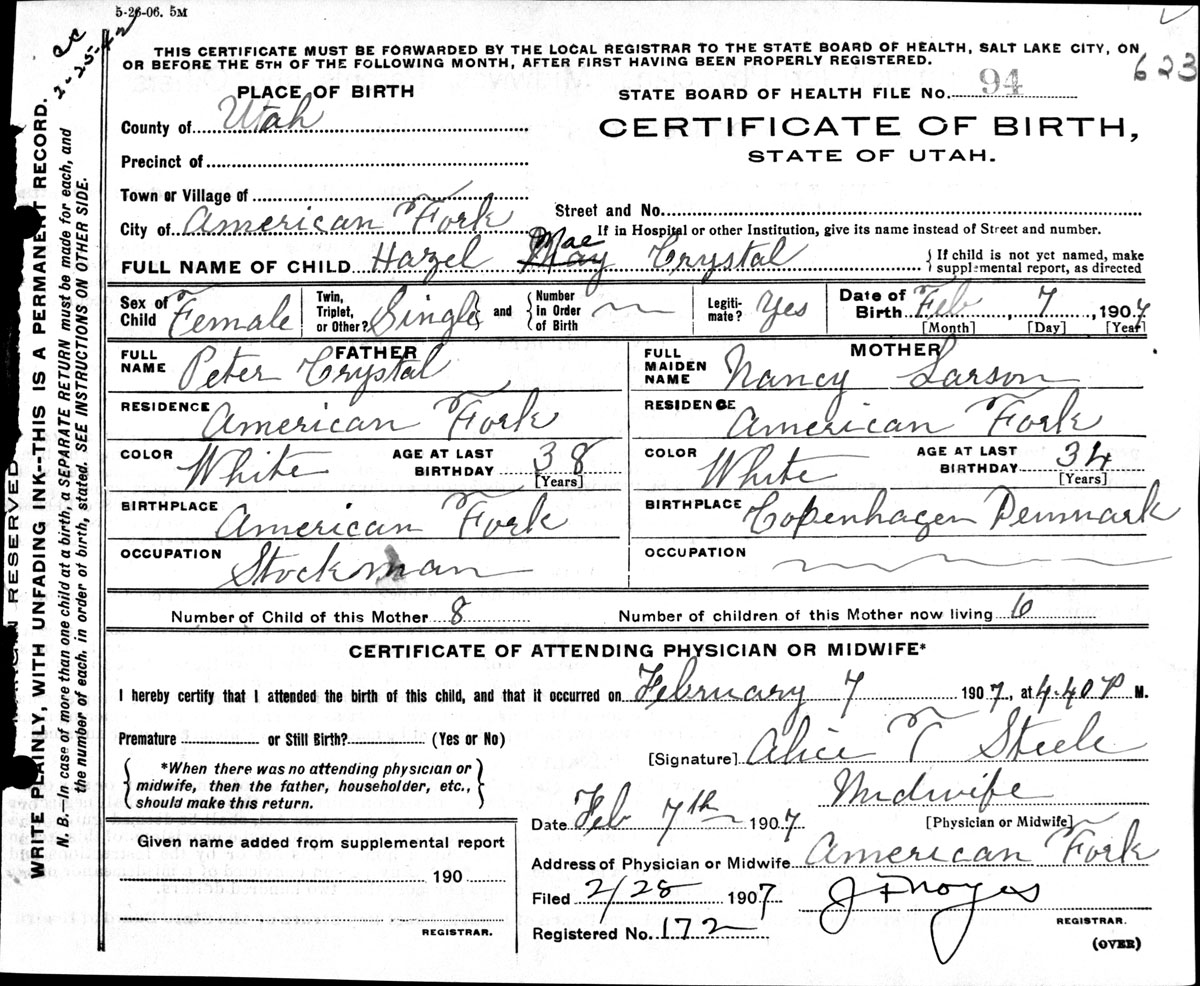 5-26-06. 5M
cc
2-25-42
THIS CERTIFICATE MUST BE FORWARDED BY THE LOCAL REGISTRAR TO THE STATE BOARD OF HEALTH, SALT LAKE CITY, ON
OR BEFORE THE 5TH OF THE FOLLOWING MONTH, AFTER FIRST HAVING BEEN PROPERLY REGISTERED.
623
PLACE OF BIRTH
STATE BOARD OF HEALTH FILE No. 94
County of Utah
CERTIFICATE OF BIRTH,
STATE OF UTAH.
Precinct of
Town or Village of
Street and No.
City of American Fork
If in Hospital or other Institution, give its name instead of Street and number.
FULL NAME OF CHILD Hazel May Mae Crystal
If child is not yet named, make
supplemental report, as directed
Sex of Child Female
Twin, Triplet, or Other? Single and Number In Order of Birth
Legitimate? Yes
Date of Birth Feb, 7, 1907
[Month] [Day] [Year]
FATHER
FULL NAME Peter Crystal
MOTHER
FULL MAIDEN NAME Nancy Larson
RESIDENCE American Fork
RESIDENCE American Fork
COLOR White AGE AT LAST BIRTHDAY 38 [Years]
COLOR White AGE AT LAST BIRTHDAY 34 [Years]
BIRTHPLACE American Fork
BIRTHPLACE Copenhagen Denmark
OCCUPATION Stockman
OCCUPATION
Number of Child of this Mother 8
Number of children of this Mother now living 6
CERTIFICATE OF ATTENDING PHYSICIAN OR MIDWIFE*
I hereby certify that I attended the birth of this child, and that it occurred on February 7 1907, at 4.40 P M.
Premature or Still Birth? (Yes or No)
[Signature] Alice T Steele
*When there was no attending physician or
midwife, then the father, householder, etc.,
should make this return.
Midwife
[Physician or Midwife]
Date Feb 7th 1907
Given name added from supplemental report
190
REGISTRAR.
Address of Physician or Midwife American Fork
Filed 2/28 1907
J F Noyes
REGISTRAR.
Registered No. 172
(OVER)
RESERVED
WRITE PLAINLY, WITH UNFADING INK--THIS IS A PERMANENT RECORD.
N. B. In case of more than one child at a birth, a SEPARATE RETURN must be made for each, and
the number of each, in order of birth, stated. SEE INSTRUCTIONS ON OTHER SIDE.